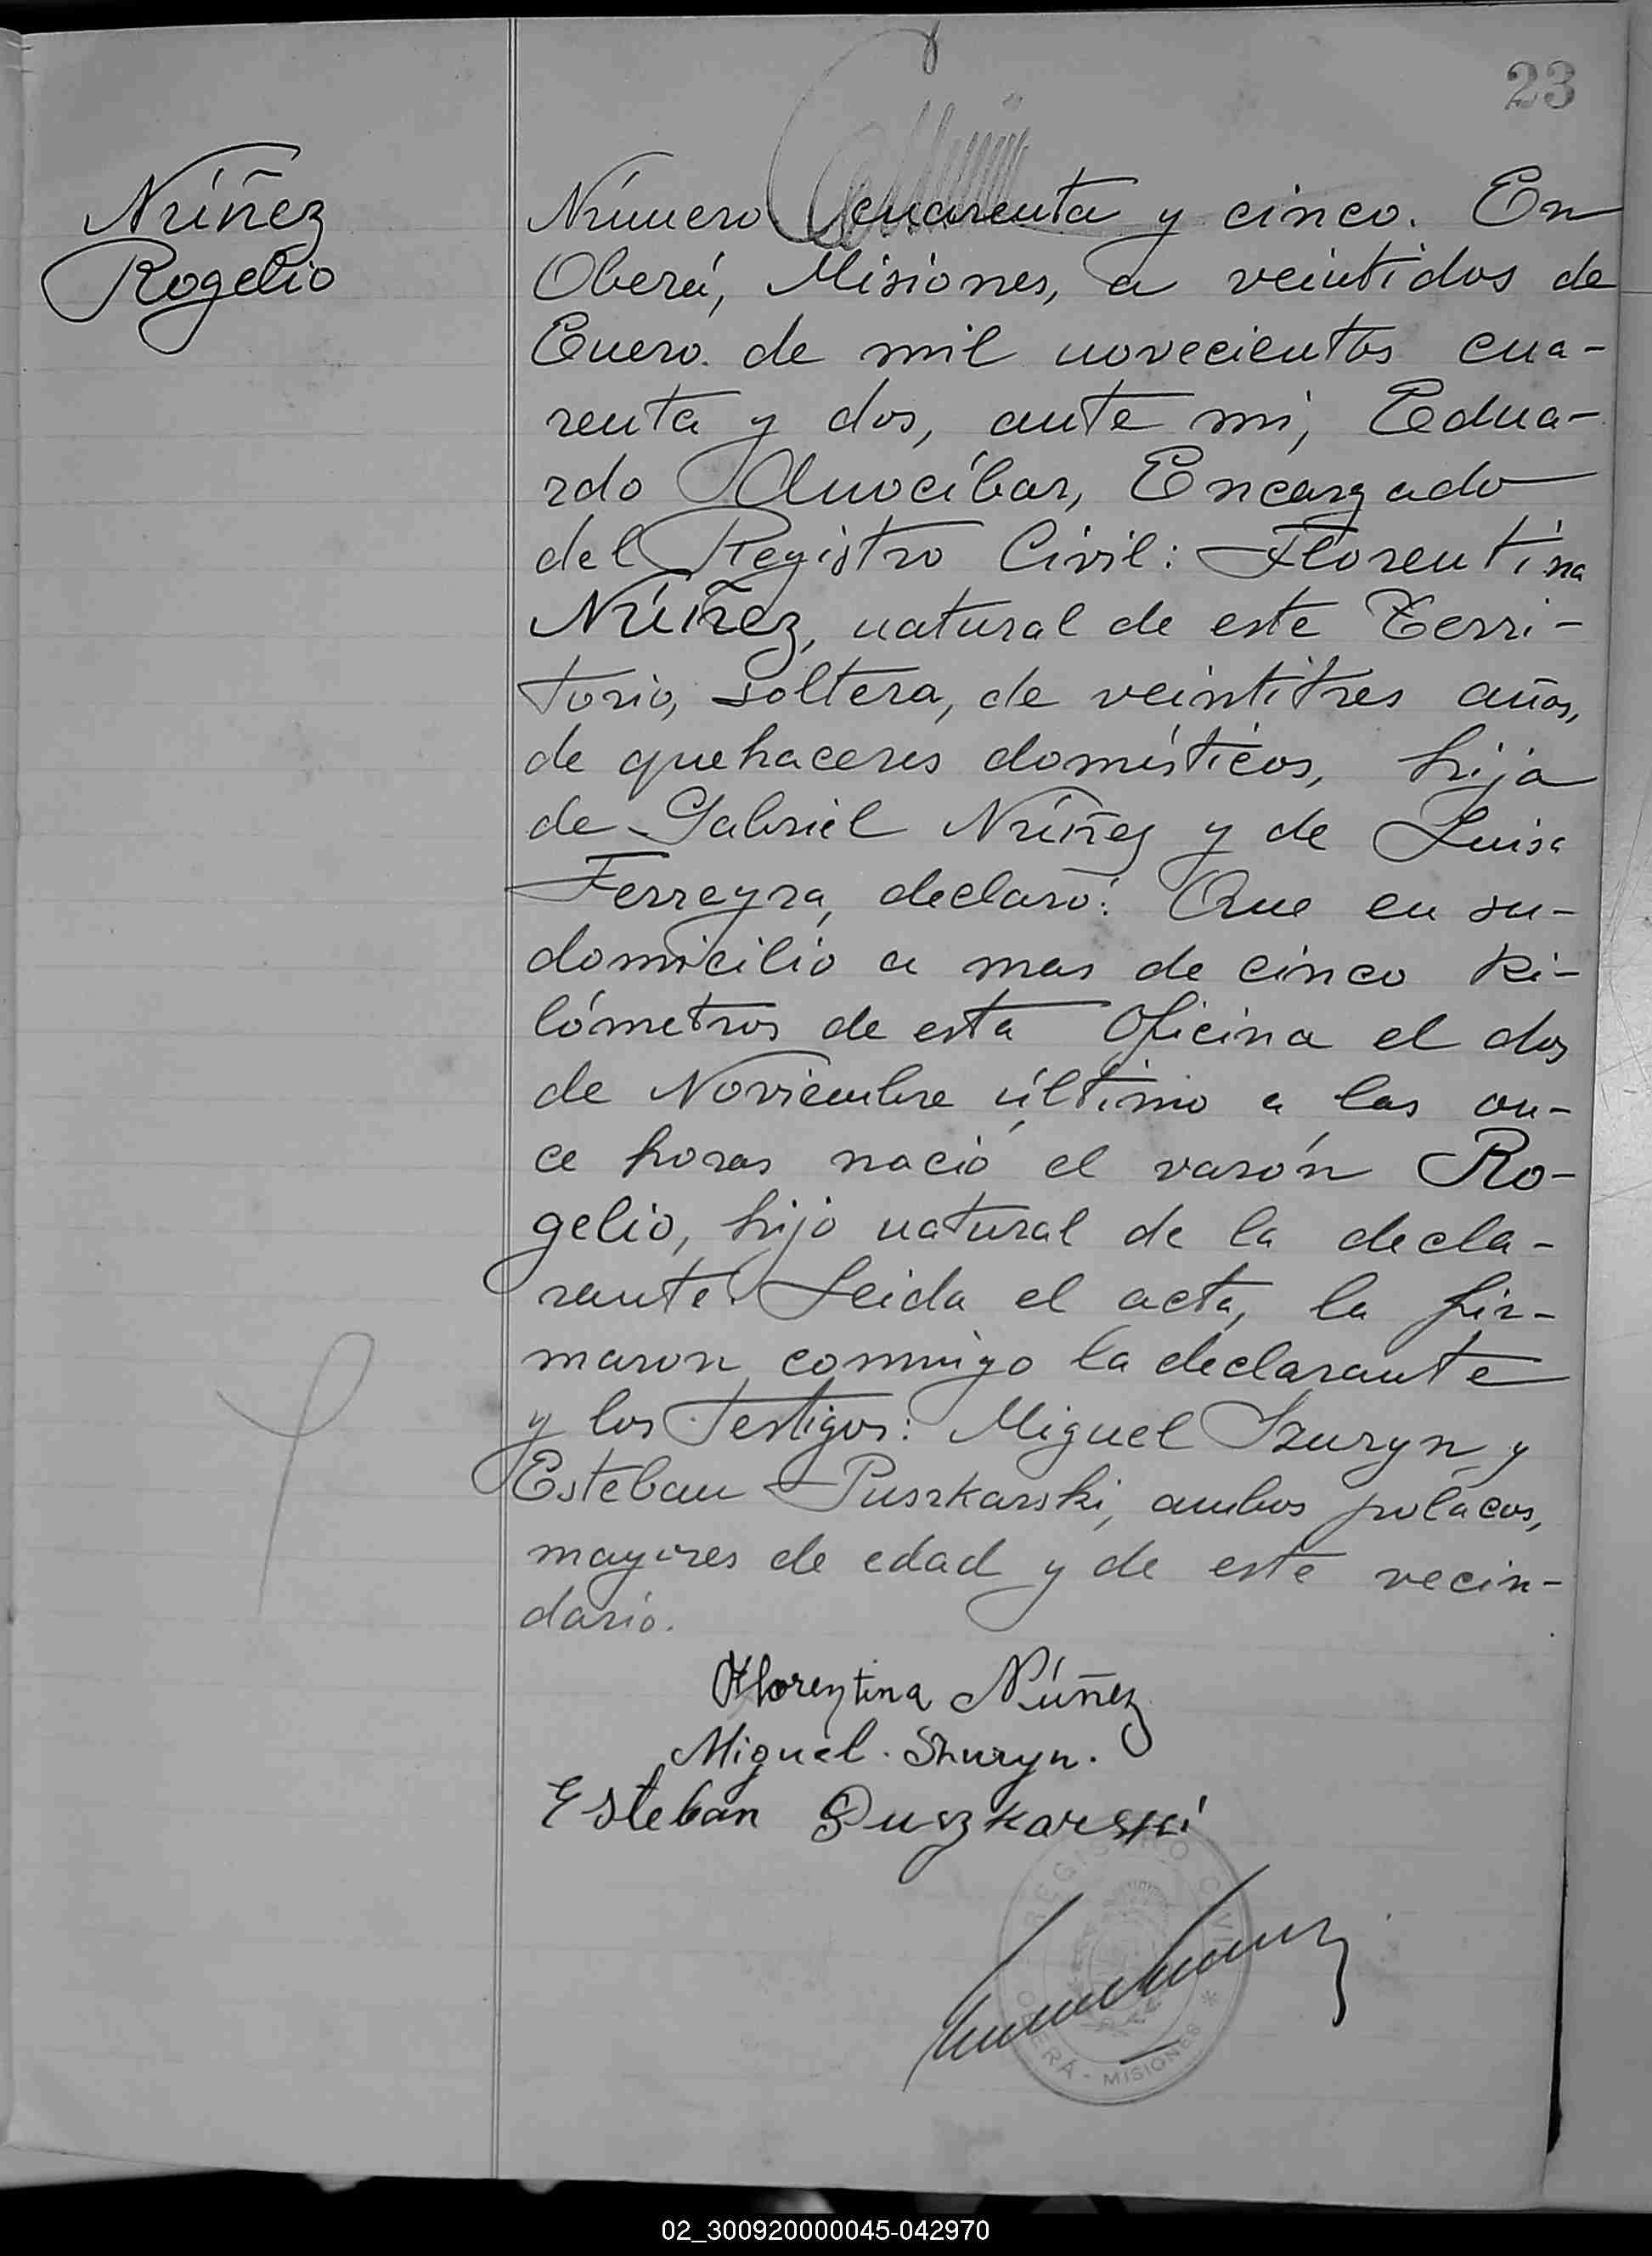 23
Núñez
Rogelio
Número cuarenta y cinco. En
Oberá, Misiones, a veintidos de
Enero. de mil novecientos cua-
renta y dos, ante mi, Edua-
rdo Anocíbar, Encargado
del Registro Civil: Florentina
Núñez, natural de este Terri-
torio, soltera, de veintitres años,
de quehaceres domésticos, hija
de Gabriel Núñez y de Luisa
Ferreyra, declaró: Que en su-
domicilio a mas de cinco ki-
lómetros de esta Oficina el dos
de Noviembre último a las on-
ce horas nació el varón Ro-
gelio, hijo natural de la decla-
rante. Leida el acta, la fir-
maron conmigo la declarante
y los testigos: Miguel Szuryn y
Esteban Puszkarski, ambos polacos,
mayores de edad y de este vecin-
dario.
Florentina Núñez
Miguel. Szuryn.
Esteban Puszkarski
REGISTRO CIVIL
OBERÁ - MISIONES *
02_300920000045-042970